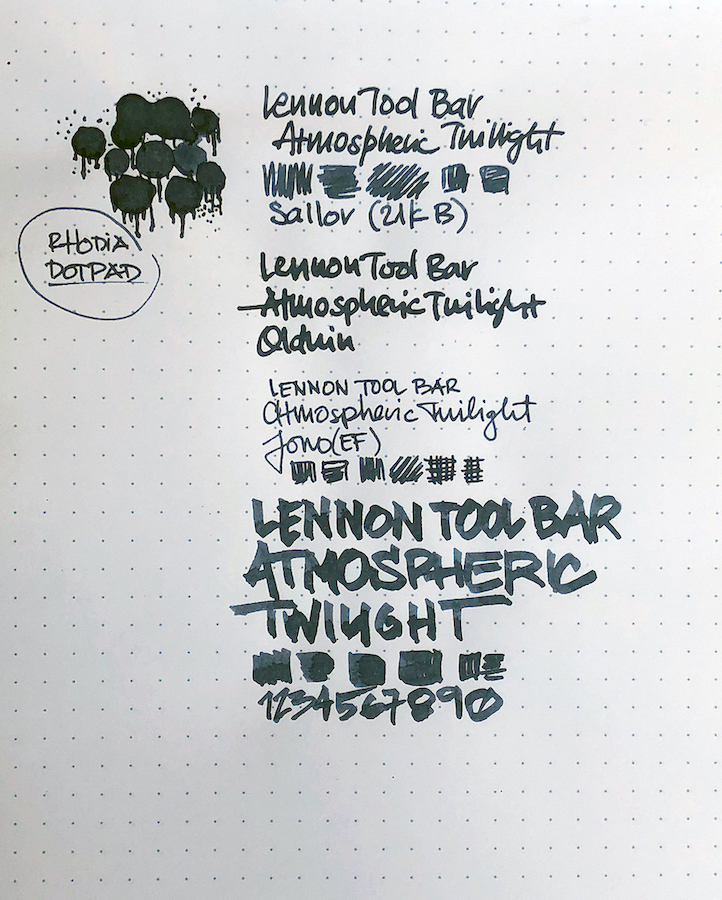 RHODIA
DOTPAD
Lennon Tool Bar
Atmospheric Twillight
Sailor (21K B)
Lennon Tool Bar
Atmospheric Twilight
LENNON TOOL BAR
Atmospheric Twilight
Jowo (EF)
LENNON TOOL BAR
ATMOSPHERIC
TWILIGHT
1234567890